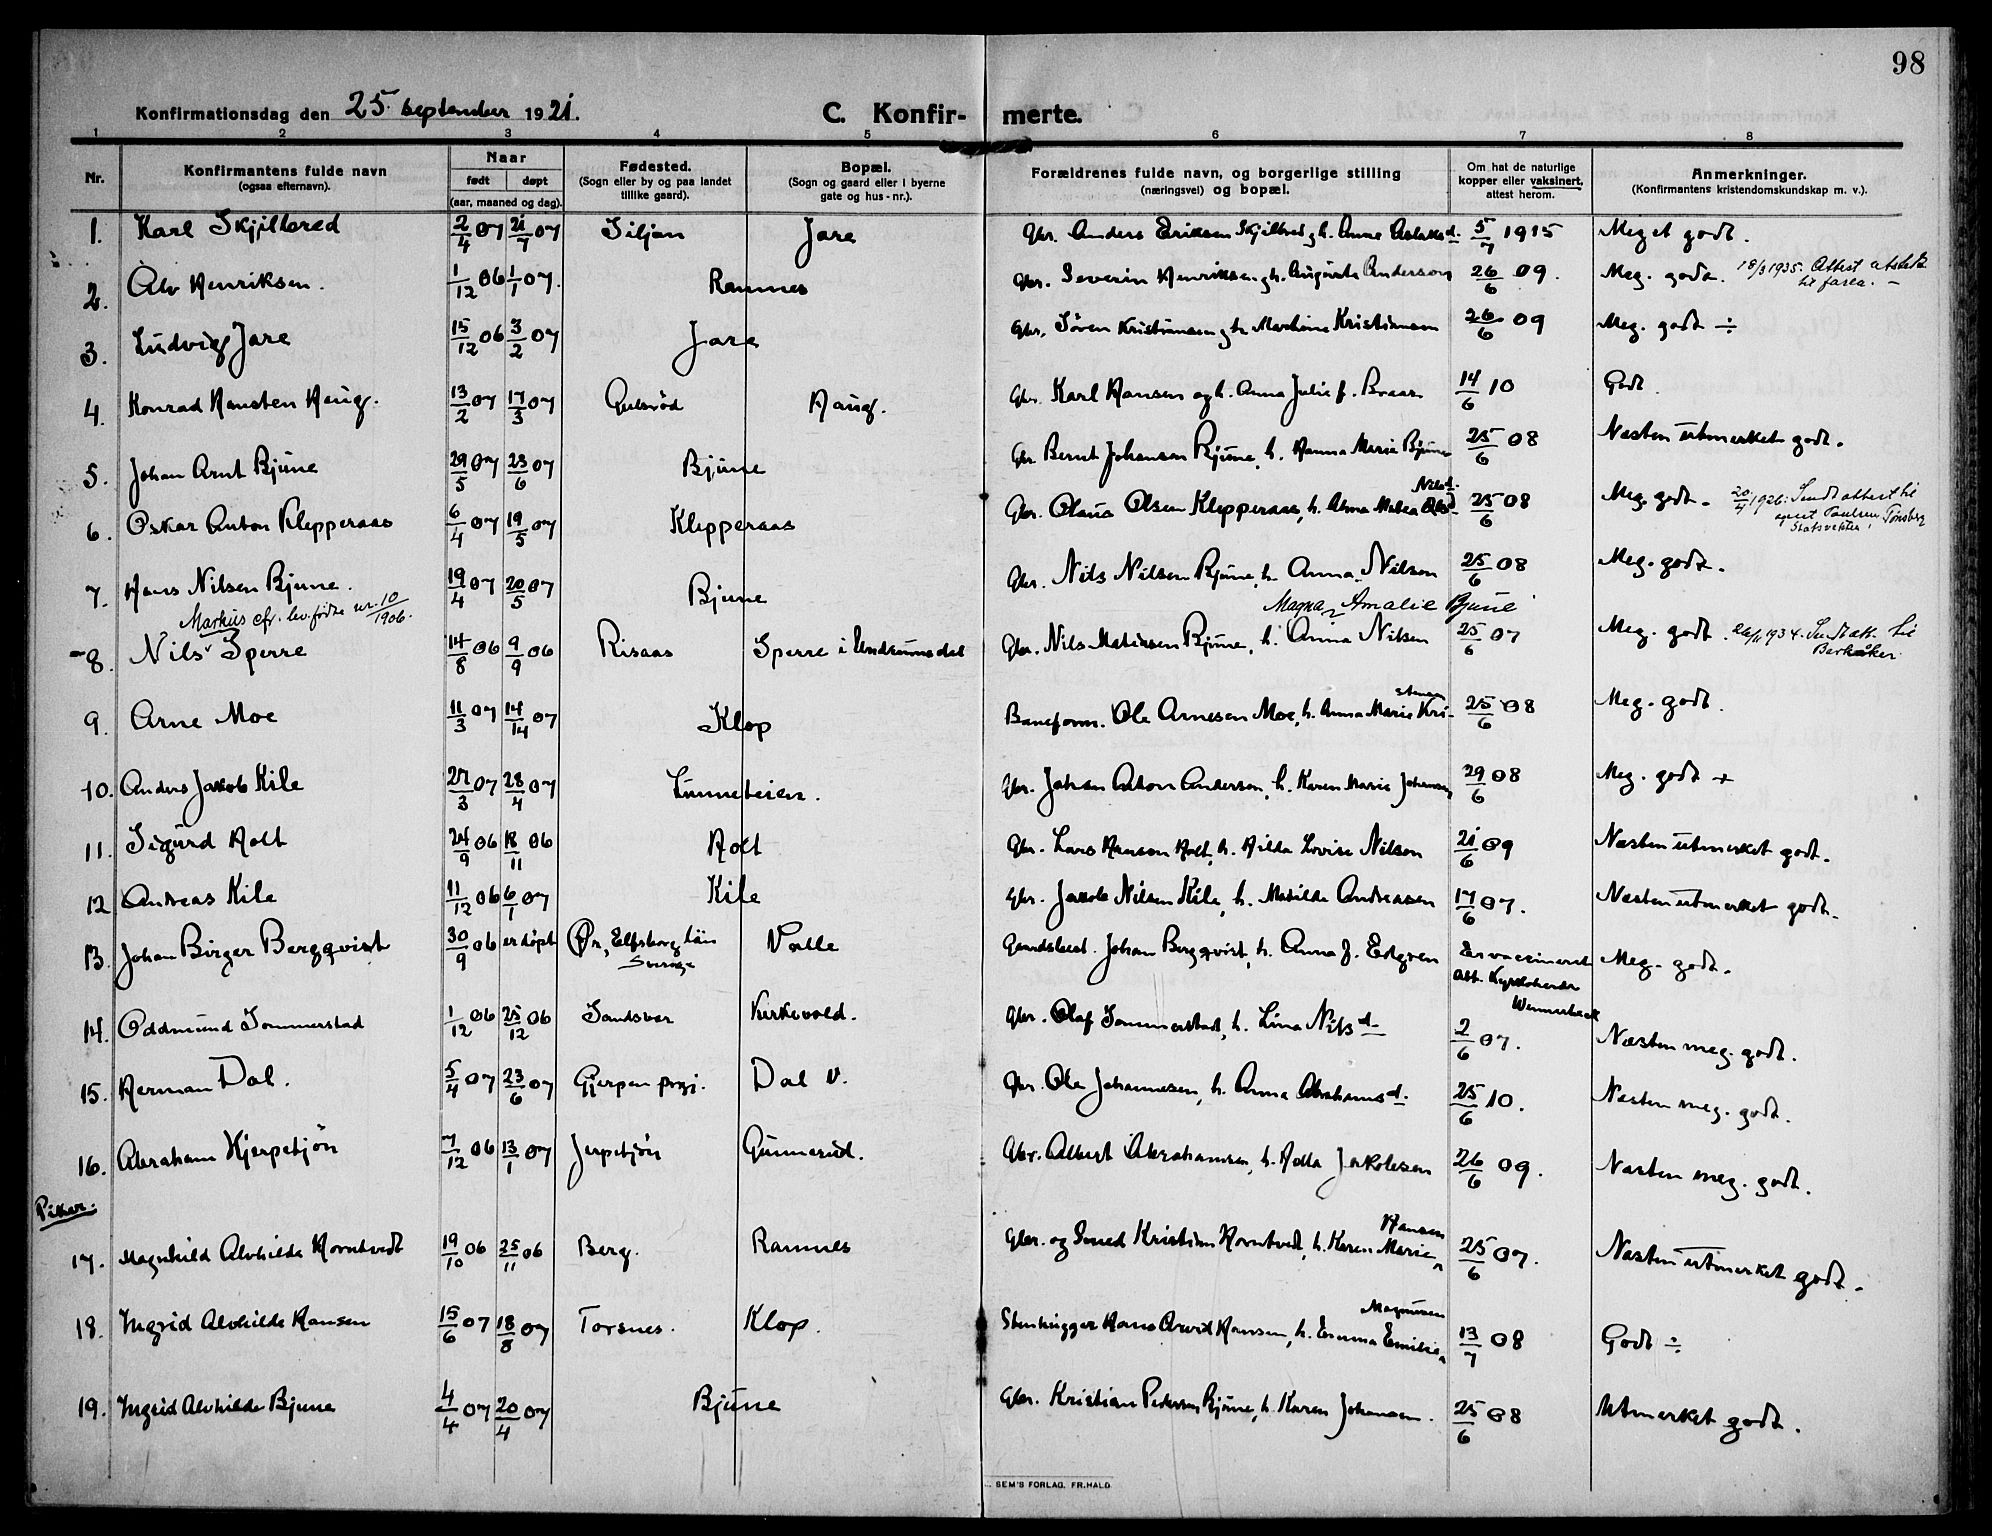 98
Konfirmationsdag den 25 september 1921.
C. Konfir- merte.
1 2 3 4 5 6 7 8
Nr. Konfirmantens fulde navn (ogsaa efternavn). Naar født døpt (aar, maaned og dag). Fødested. (Sogn eller by og paa landet tillike gaard). Bopæl. (Sogn og gaard eller i byerne gate og hus-nr.). Forældrenes fulde navn, og borgerlige stilling (næringsvei) og bopæl. Om hat de naturlige kopper eller vaksinert, attest herom. Anmerkninger. (Konfirmantens kristendomskundskap m. v.).
1. Karl Skjilbred 2/4 07 21/7 07 Siljan Jare Gbr. Anders Eriksen Skjilbred og h. Anne Aslaksd. 5/7 1915 Meget godt.
2. Alv Henriksen. 1/12 06 1/1 07. Ramnes Gbr. Severin Henriksen og h. Augusta Anderson 26/6 09. Meg. godt. 18/3 1935: Attest utstedt til farea. -
3. Ludvig Jare 15/12 06 3/2 07 Jare Gbr. Søren Kristiansen og h. Martine Kristiansen 26/6 09 Meg. godt ÷
4. Konrad Hansten Haug. 13/2 07 17/3 07 Gulsrød Haug. Gbr. Karl Hansen og h. Anna Julie f. Braar 14/6 10 Godt.
5. Johan Arnt Bjune 29/5 07 23/6 07 Bjune Gbr. Bernt Johansen Bjune, h. Hanna Marie Bjune 25/6 08 Næsten utmerket godt.
6. Oskar Anton Klepperaas 6/4 07 19/5 07 Klepperaas Gbr. Olaus Olsen Klepperaas, h. Alma Matea Nilsd. 25/6 08 Meg. godt. 20/4 1926: Sendt attest til Paulsen Tønsberg
7. Hans Nilsen Bjune. 19/4 07 20/5 07 Bjune Gbr. Nils Nilsen Bjune, h. Anna Nilsen 25/6 08 Meg. godt.
Markus cfr. lev. fødte nr. 10/1906. Magna Amalie Bjune
8. Nils Sperre 14/8 06 9/9 06 Risaas Sperre i Undrumsdal Gbr. Nils Matissen Bjune, h. Anna Nilsen 25/6 07 Meg. godt. 26/11 1934. Sendt att. til Barkåker
9. Arne Moe 11/3 07 14/14 07 Klop Baneform. Ole Arnesen Moe, h. Anna Marie Kristensen 25/6 08 Meg. godt.
10. Anders Jakob Kile 27/3 07 28/4 07 Lunneteien. Gbr. Johan Anton Anderson, h. Karen Marie Johansen 29/6 08 Meg. godt +
11. Sigurd Holt 24/9 06 18/11 06 Holt Gbr. Lars Hansen Holt, h. Hilda Lovise Nilson 21/6 09 Næsten utmerket godt.
12 Andreas Kile 11/12 06 6/1 07 Kile Gbr. Jakob Nilsen Kile, h. Matilde Andreassen 17/6 07. Næsten utmerket godt.
13. Johan Birger Bergqvist 30/9 06 er døpt Ør, Elfsborg län Sverige Valle Gaardsbest. Johan Bergqvist, h. Anna f. Edgren Er vaccineret att. Kyrkoherde Wennerbeck Meg. godt.
14. Oddmund Sommerstad 1/12 06 25/12 06 Sandsvær Kirkevold. Gbr. Olaf Sommerstad, h. Lina Nilsd. 2/6 07. Næsten meg. godt.
15. Herman Dal. 5/4 07 23/6 07 Gjerpen prgj. Dal V. Gbr. Ole Johannesen, h. Anna Abrahamsd. 25/6 10. Næsten meg. godt.
16. Abraham Hjerpetjøn 7/12 06 13/1 07 Jerpetjøn Gunnerud. Gbr. Albert Abrahamsen, h. Hella Jakobsen 26/6 09. Næsten meg. godt.
Piker.
17. Magnhild Alvhilde Horntvedt 19/10 06 25/11 06 Berg. Ramnes Gbr. og Smed Kristian Horntvedt, h. Karen Marie Hansen 25/6 07. Næsten utmerket godt.
18. Ingrid Alvhilde Hansen 15/6 07 18/8 07 Torsnes. Klop. Stenhugger Hans Arvid Hansen, h. Emma Emilie Magnussen 13/7 08 Godt ÷
19. Ingrid Alvhilde Bjune 4/4 07 20/4 07 Bjune Gbr. Kristian Pedersen Bjune, h. Karen Johansen. 25/6 08 Utmerket godt.
SEM'S FORLAG, FR.HALD